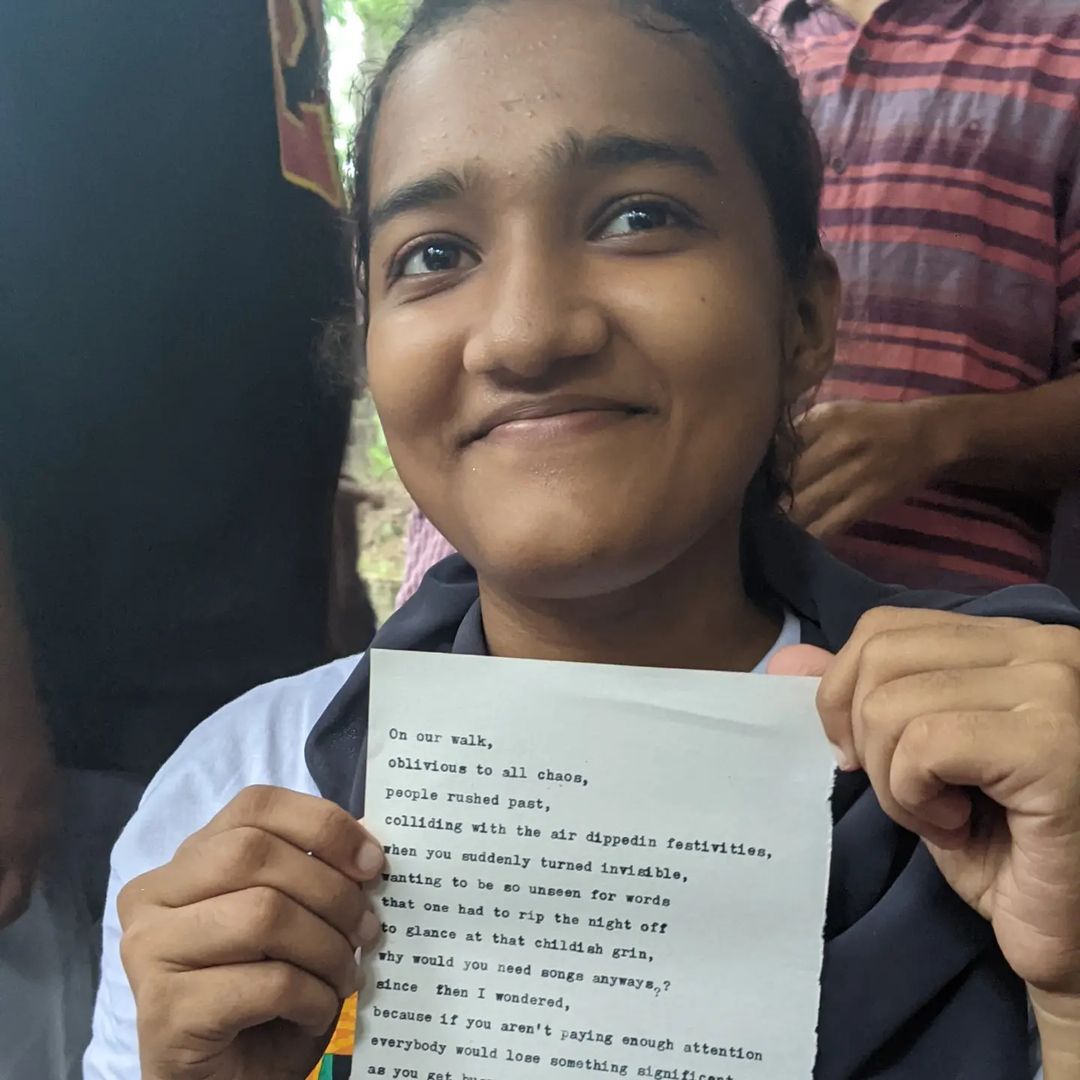 On our walk,
oblivious to all chaos,
people rushed past,
colliding with the air dippedin festivities,
when you suddenly turned invisible,
wanting to be so unseen for words
that one had to rip the night off
to glance at that childish grin,
why would you need songs anyways??
since then I wondered,
because if you aren't paying enough attention
everybody would lose something significant
as you get